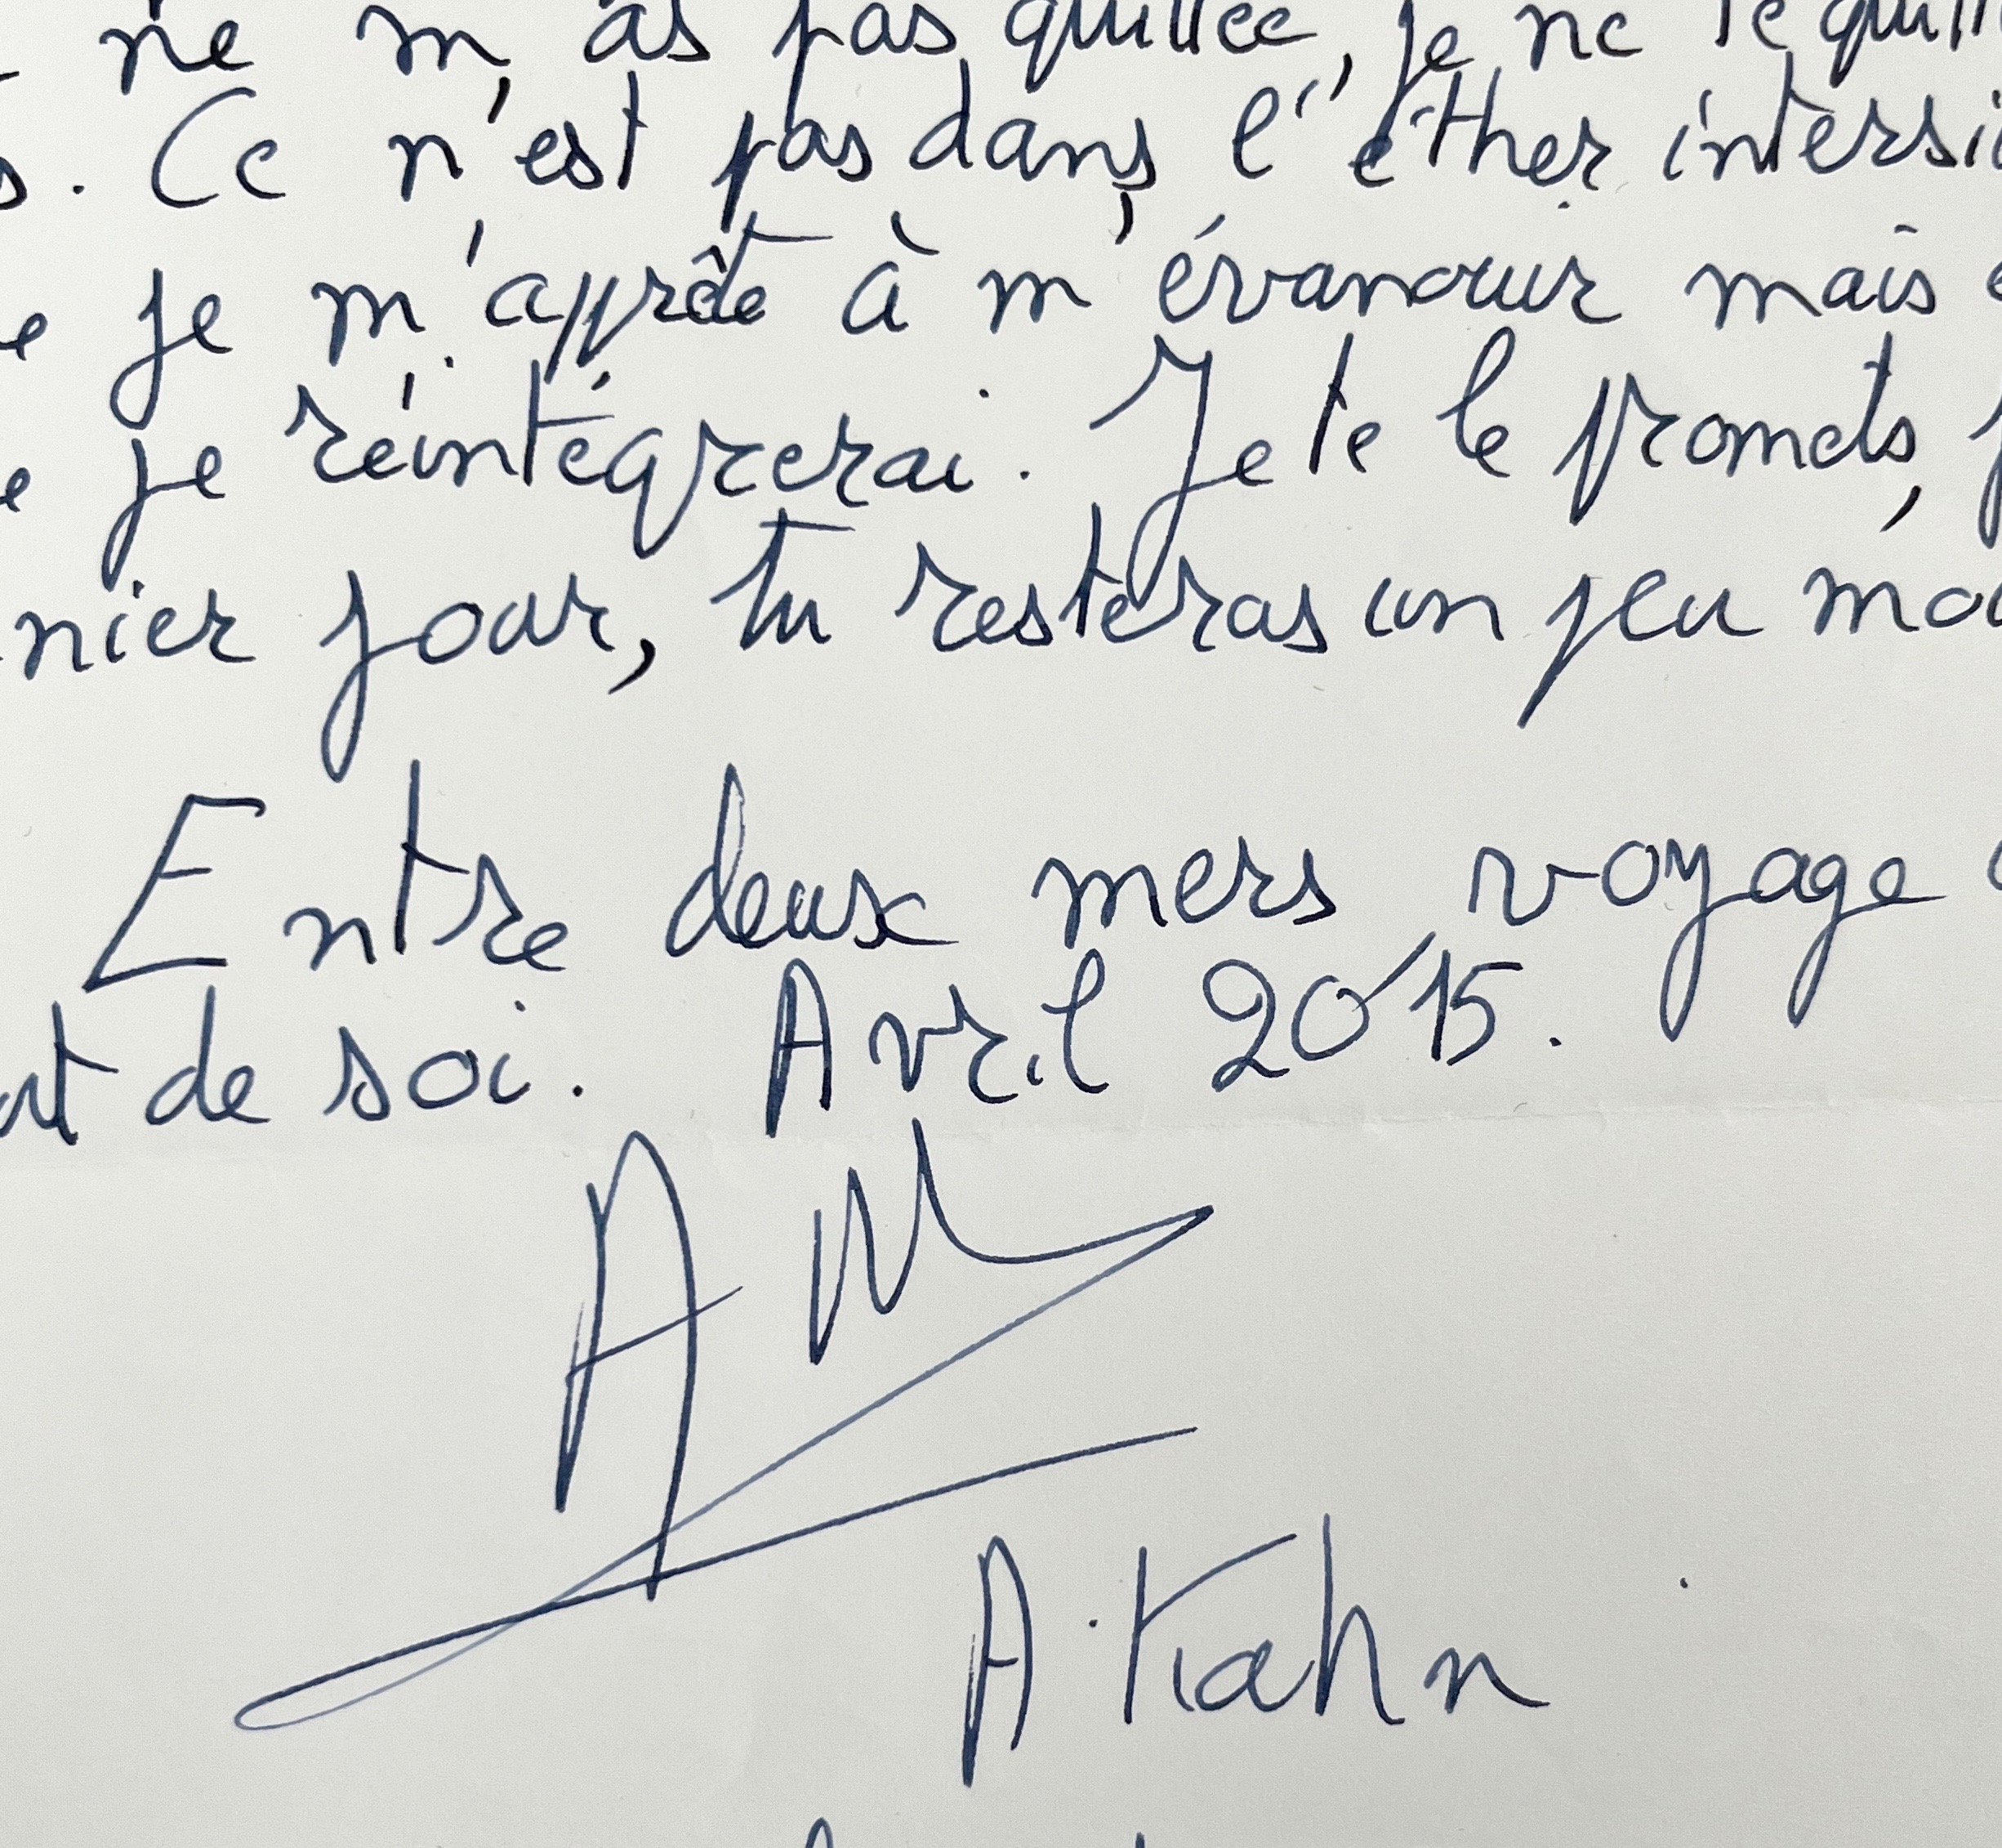 ne m'as pas quittée, je ne te quitt
s. Ce n'est pas dans l'éther intersi
e je m'apprête à m'évanouir mais
e je réintégrerai. Je te le promets,
nier jour, tu resteras un peu mo
Entre deux mers, voyage
ut de soi. Avril 2015.
A. Kahn